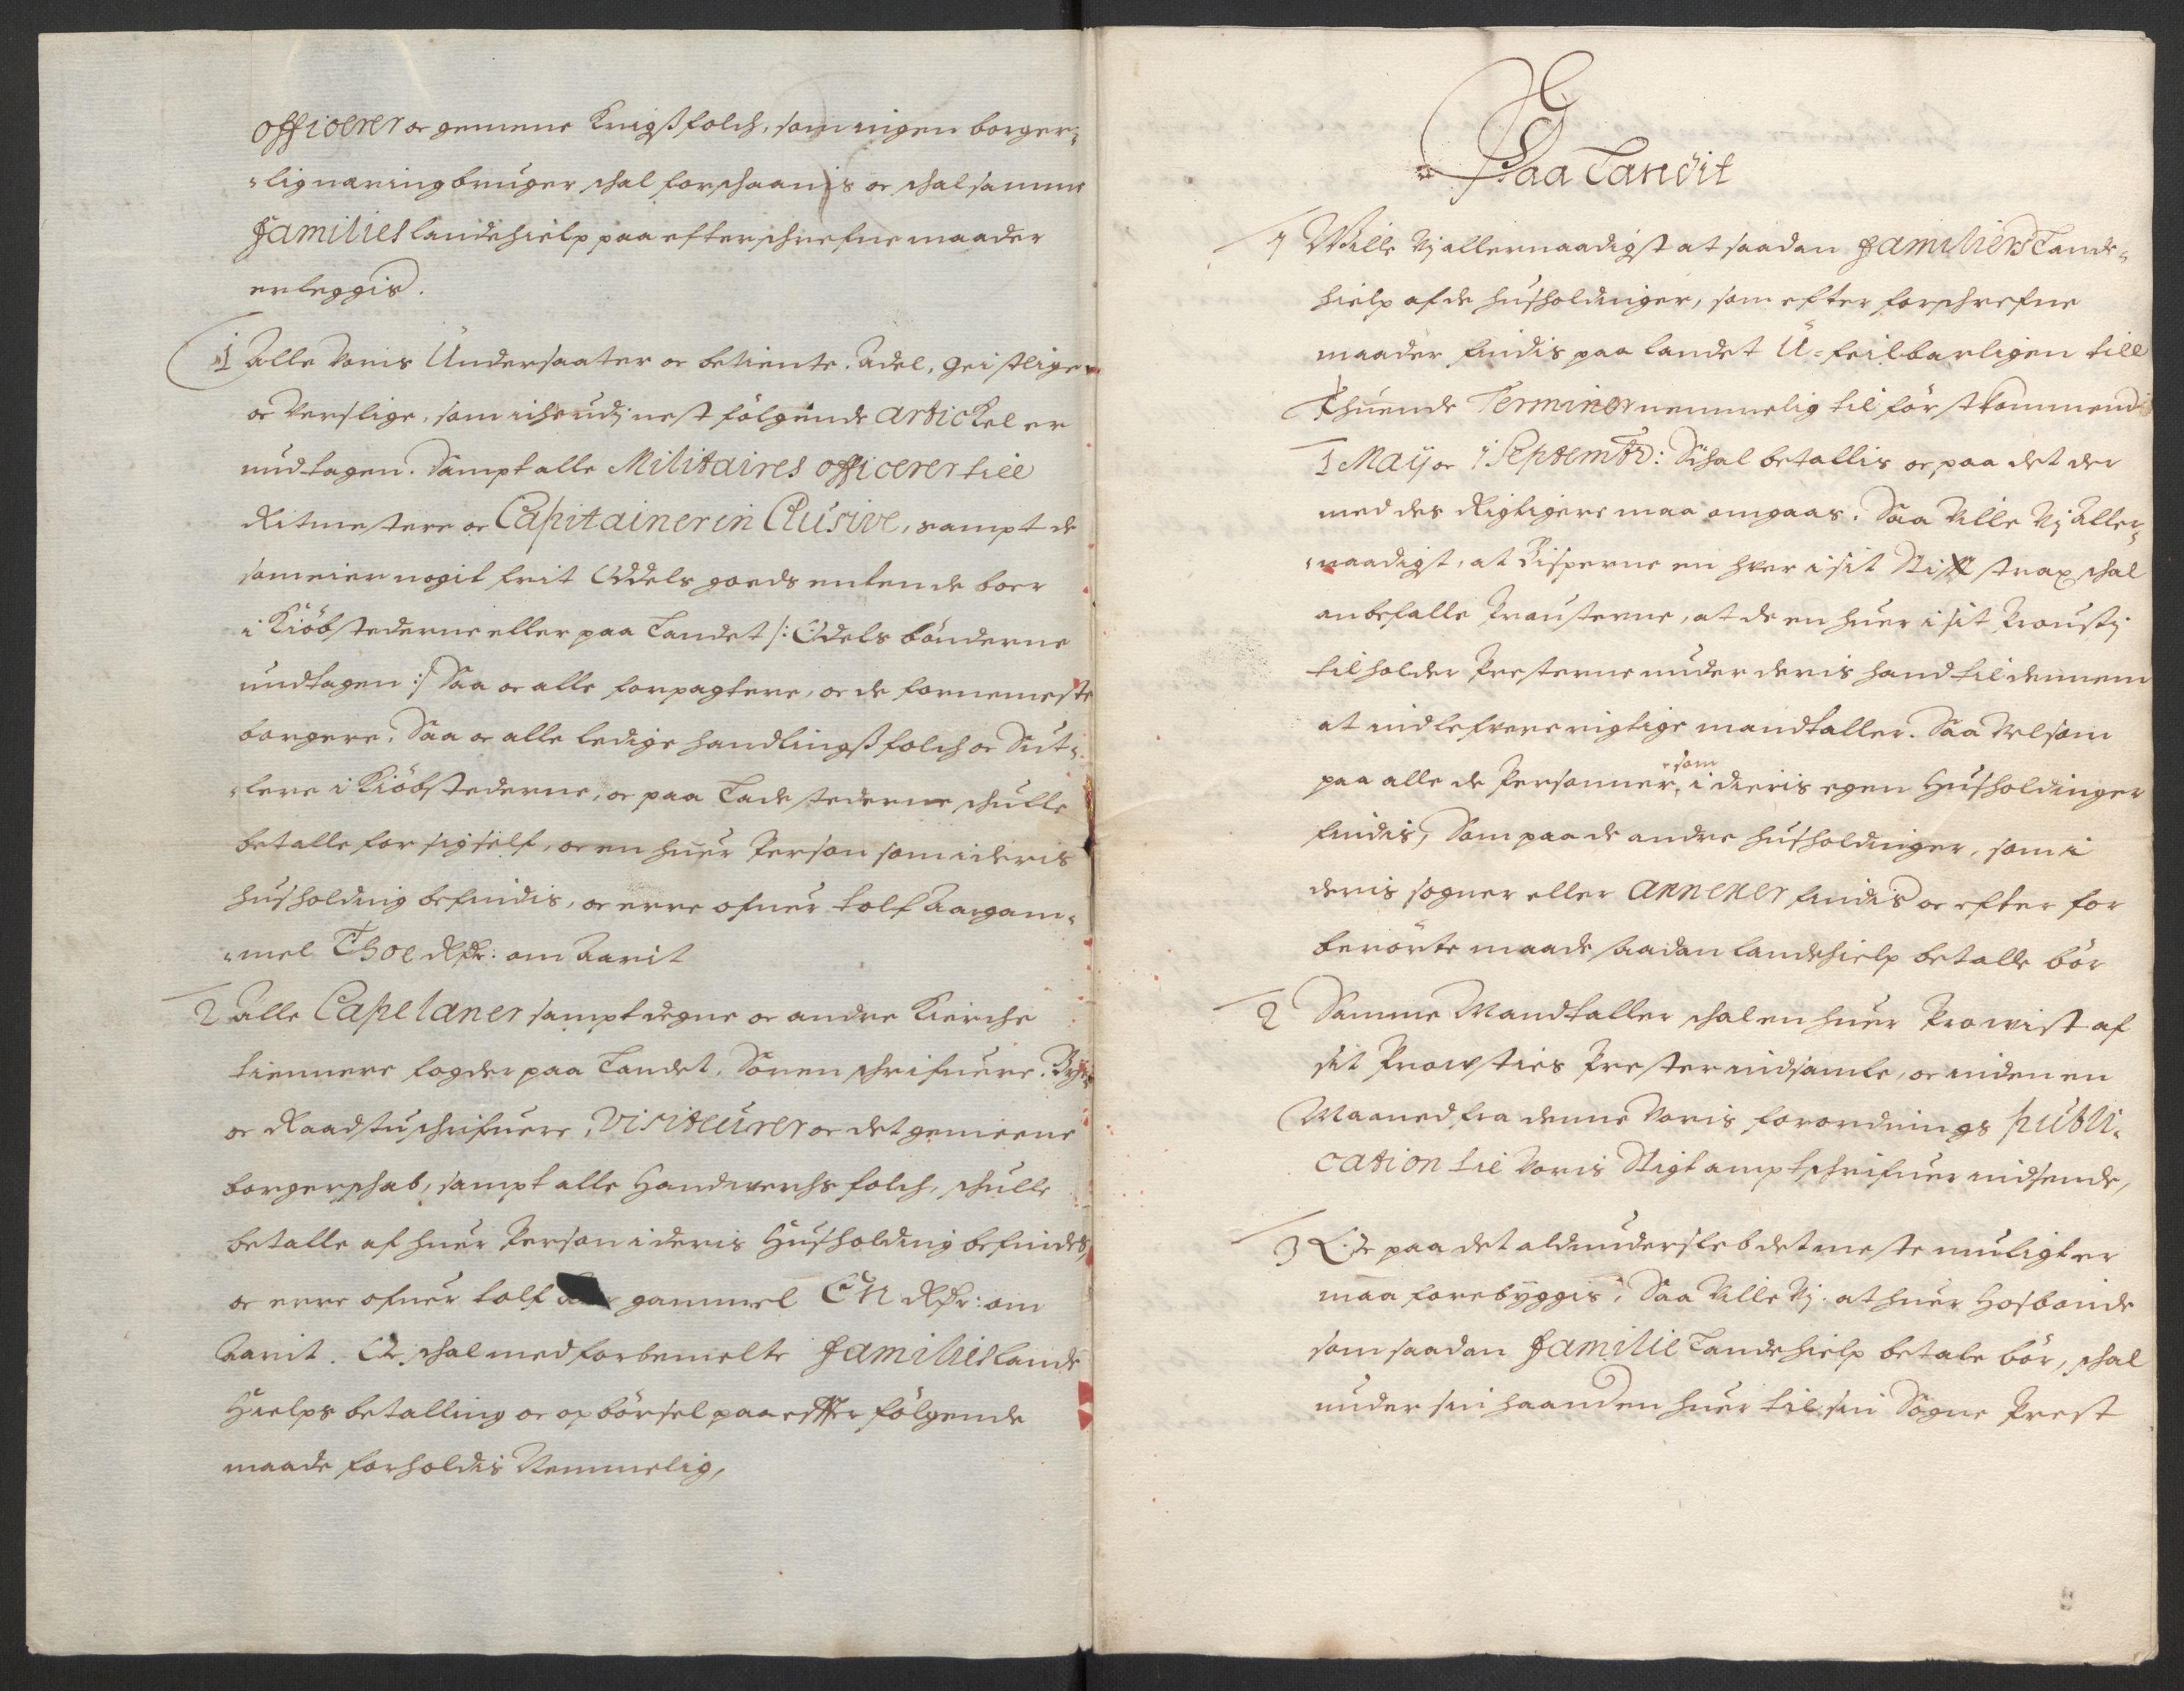 officerer oc gemene Krigsßfolch, som ingen borger-
-lig næring bruger schal forschaanis oc schal samme
Families landehielp paa efterschrefne maader
erleggis.
1 Alle Voris Undersaater oc betiente. Adel, Geistlige
oc Verslige, som iche udj nest følgende Artickel er
undtagen. Sampt alle Militaires officerer till
Ritmestere oc Capitainer in Clusive, sampt de
som eier nogit frit Oddels goeds enten de boer
i Kiöbstederne eller paa Landet /: Odels bönderne
undtagen :/ Saa oc alle forpagtere, oc de fornemeste
borgere. Saa oc alle ledige handlingsßfolch oc Sut-
-lere i Kiöbstederne, oc paa Ladestederne schulle
betalle for sig self, oc en huer Person som i deris
husholding befindis, oc erre ofuer tolf Aar gam-
-mel Thoe Rdr: om Aarit
2 Alle Capelaner sampt degne oc andre Kierche
tiennere fogder paa Landet, Sorenschrifuere. By
oc Raadstuschrifuere, Visiteurer oc det gemeene
borgerschab, sampt alle Handwerchsfolch, schulle
betalle af huer Person i deris Husholding befindes
oc erre ofuer tolf gammel En Rdr: om
Aarit. Oc schal med forbemelte Families lande
Hielps betalling oc opbörsel paa efter følgende
maade forholdis Nemmelig,
Paa Landit
1 Wille Vj allernaadigst at saadan Familiers Lande-
hielp af de husholdninger, som efter forschrefne
maader findis paa landet U-feilbarligen till
Thuende Terminer nemmelig til först kommende
1 Maij oc 1 Septembr: Schal betallis oc paa det der
med des Rigtigere maa omgaas. Saa Ville Vj Aller-
-naadigst, at Bisperne en hver i sit Stift strax schal
anbefalle Prousterne, at de en huer i sit Proustj
tilholder Presterne under deris hand til dennem
at indlefvere rigtige mandtaller. Saa Vel som
paa alle de Personner, som i deeris egen Husholdinger
findis, Som paa de andre husholdinger, som i
deris sogner eller Annexer findis oc efter for
berörte maade saadan landehielp betalle bör
2 Samme Mandtaller schal en huer Prowist af
sit Prowsties Prester indsamle, oc inden en
Maaned fra denne Voris forordnings publi-
cation til Voris Stigtamptschrifuer indsende,
3 Oc paa det ald undersleb det meste muligt er
maa forebyggis, Saa Ville Vj. at huer Hosbonde
som saadan Familie Landehielp betale bör, schal
under sin haand en huer til sin Sogne Prest